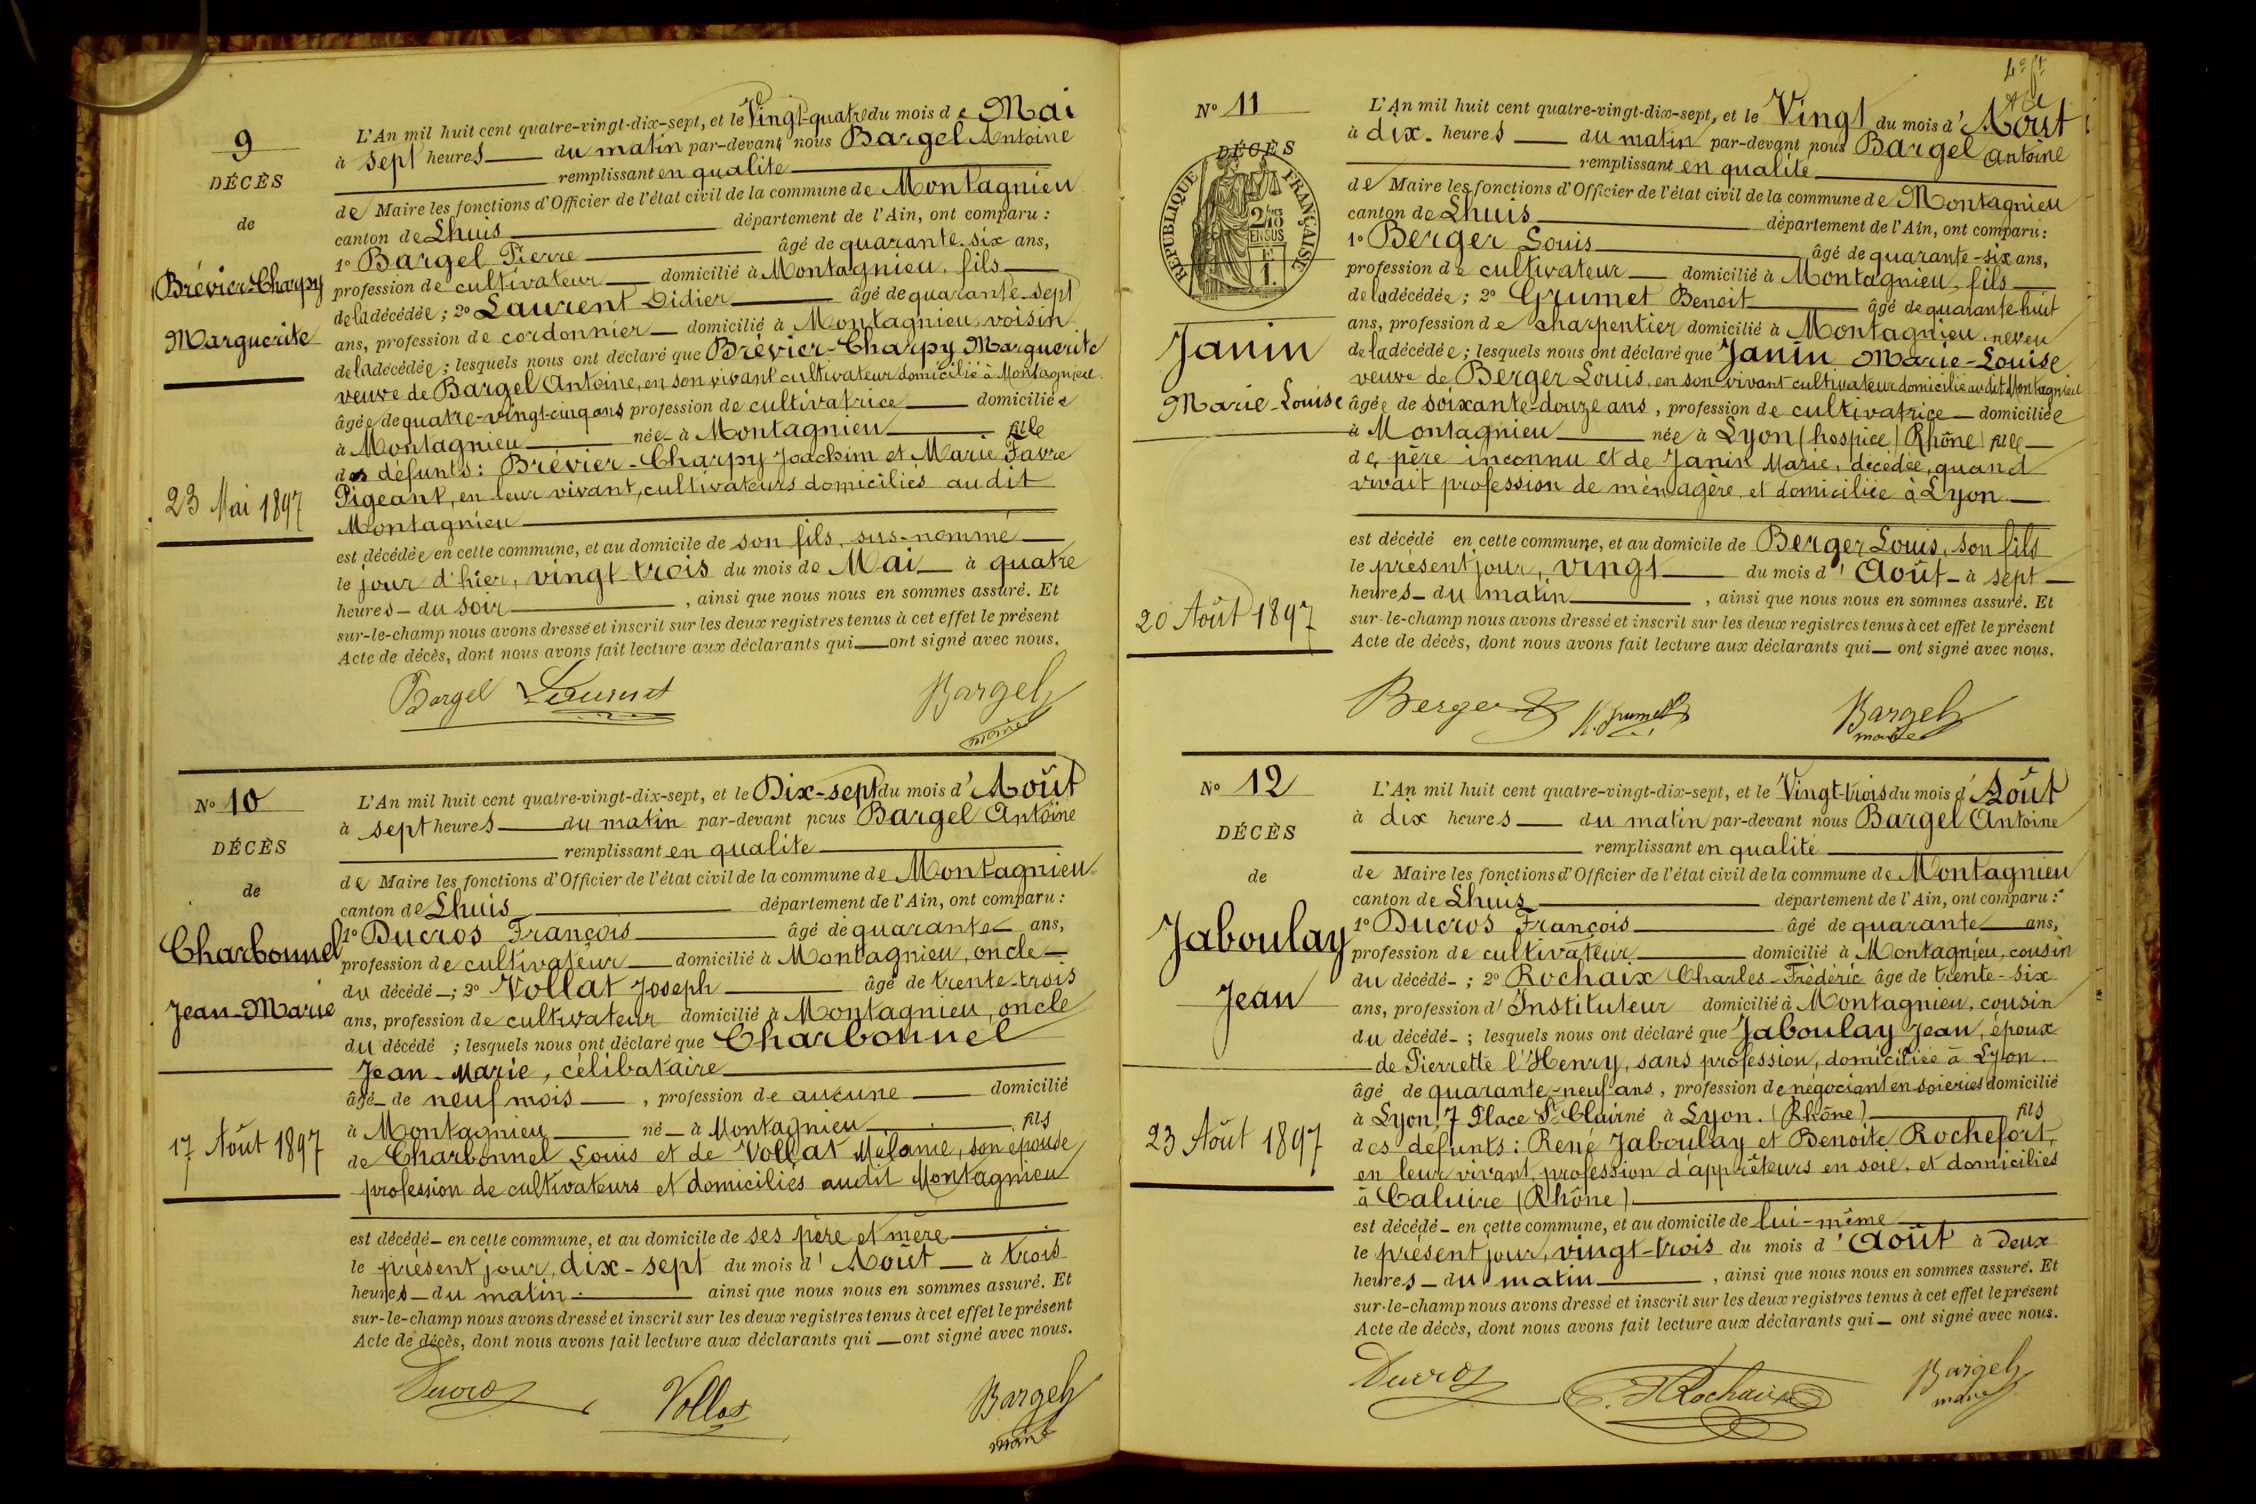 9
DÉCÈS
de
Brévier-Charpy
Marguerite
23 Mai 1897
L'An mil huit cent quatre-vingt-dix-sept, et le Vingt-quatre du mois de Mai
à sept heures du matin par-devant nous Bargel Antoine
remplissant en qualité
de Maire les fonctions d'Officier de l'état civil de la commune de Montagnieu
canton de Lhuis département de l'Ain, ont comparu :
1º Bargel Pierre âgé de quarante-six ans,
profession de cultivateur domicilié à Montagnieu, fils
de la décédée ; 2º Laurent Didier âgé de quarante-sept
ans, profession de cordonnier domicilié à Montagnieu, voisin
de la décédée ; lesquels nous ont déclaré que Brévier-Charpy Marguerite
veuve de Bargel Antoine, en son vivant cultivateur domicilié à Montagnieu
âgée de quatre-vingt-cinq ans profession de cultivatrice domiciliée
à Montagnieu née à Montagnieu fille
des défunts : Brévier-Charpy Joachim et Marie Favre
Pigeant, en leur vivant, cultivateurs domiciliés audit
Montagnieu
est décédée en cette commune, et au domicile de son fils, sus-nommé
le jour d'hier, vingt-trois du mois de Mai à quatre
heures du soir , ainsi que nous nous en sommes assuré. Et
sur-le-champ nous avons dressé et inscrit sur les deux registres tenus à cet effet le présent
Acte de décès, dont nous avons fait lecture aux déclarants qui ont signé avec nous.
Bargel Laurent Bargel
maire
Nº 10
DÉCÈS
de
Charbonnel
Jean-Marie
17 Août 1897
L'An mil huit cent quatre-vingt-dix-sept, et le Dix-sept du mois d'Août
à sept heures du matin par-devant nous Bargel Antoine
remplissant en qualité
de Maire les fonctions d'Officier de l'état civil de la commune de Montagnieu
canton de Lhuis département de l'Ain, ont comparu :
1º Ducros François âgé de quarante ans,
profession de cultivateur domicilié à Montagnieu, oncle
du décédé ; 2º Vollat Joseph âgé de trente-trois
ans, profession de cultivateur domicilié à Montagnieu, oncle
du décédé ; lesquels nous ont déclaré que Charbonnel
Jean-Marie, célibataire
âgé de neuf mois , profession de aucune domicilié
à Montagnieu né à Montagnieu fils
de Charbonnel Louis et de Vollat Mélanie, son épouse
profession de cultivateurs et domiciliés audit Montagnieu
est décédé en cette commune, et au domicile de ses père et mère
le présent jour, dix-sept du mois d'Août à trois
heures du matin ainsi que nous nous en sommes assuré. Et
sur-le-champ nous avons dressé et inscrit sur les deux registres tenus à cet effet le présent
Acte de décès, dont nous avons fait lecture aux déclarants qui ont signé avec nous.
Ducros Vollat Bargel
maire
Nº 11
DÉCÈS
RÉPUBLIQUE FRANÇAISE
2/10
EN SUS
1
Janin
Marie-Louise
20 Août 1897
L'An mil huit cent quatre-vingt-dix-sept, et le Vingt du mois d'Août
à dix heures du matin par-devant nous Bargel Antoine
remplissant en qualité
de Maire les fonctions d'Officier de l'état civil de la commune de Montagnieu
canton de Lhuis département de l'Ain, ont comparu :
1º Berger Louis âgé de quarante-six ans,
profession de cultivateur domicilié à Montagnieu, fils
de la décédée ; 2º Grumet Benoit âgé de quarante-huit
ans, profession de charpentier domicilié à Montagnieu, neveu
de la décédée ; lesquels nous ont déclaré que Janin Marie-Louise
veuve de Berger Louis, en son vivant cultivateur domicilié audit Montagnieu
âgée de soixante-douze ans, profession de cultivatrice domiciliée
à Montagnieu née à Lyon (hospice) Rhône) fille
de père inconnu et de Janin Marie, décédée, quand
vivait profession de ménagère et domiciliée à Lyon
est décédé en cette commune, et au domicile de Berger Louis, son fils
le présent jour, vingt du mois d'Août à sept
heures du matin , ainsi que nous nous en sommes assuré. Et
sur-le-champ nous avons dressé et inscrit sur les deux registres tenus à cet effet le présent
Acte de décès, dont nous avons fait lecture aux déclarants qui ont signé avec nous.
Berger Grumet Bargel
maire
Nº 12
DÉCÈS
de
Jaboulay
Jean
23 Août 1897
L'An mil huit cent quatre-vingt-dix-sept, et le Vingt-trois du mois d'Août
à dix heures du matin par-devant nous Bargel Antoine
remplissant en qualité
de Maire les fonctions d'Officier de l'état civil de la commune de Montagnieu
canton de Lhuis département de l'Ain, ont comparu :
1º Ducros François âgé de quarante ans,
profession de cultivateur domicilié à Montagnieu, cousin
du décédé ; 2º Rochaix Charles-Frédéric âgé de trente-six
ans, profession d'Instituteur domicilié à Montagnieu, cousin
du décédé ; lesquels nous ont déclaré que Jaboulay Jean, époux
de Pierrette l'Henry, sans profession, domiciliée à Lyon
âgé de quarante-neuf ans, profession de négociant en soieries domicilié
à Lyon, 7 Place St Clair né à Lyon. (Rhône) fils
des défunts : René Jaboulay et Benoite Rochefort,
en leur vivant, profession d'apprêteurs en soie, et domiciliés
à Caluire (Rhône)
est décédé en cette commune, et au domicile de lui-même
le présent jour, vingt-trois du mois d'Août à deux
heures du matin , ainsi que nous nous en sommes assuré. Et
sur-le-champ nous avons dressé et inscrit sur les deux registres tenus à cet effet le présent
Acte de décès, dont nous avons fait lecture aux déclarants qui ont signé avec nous.
Ducros Rochaix Bargel
maire